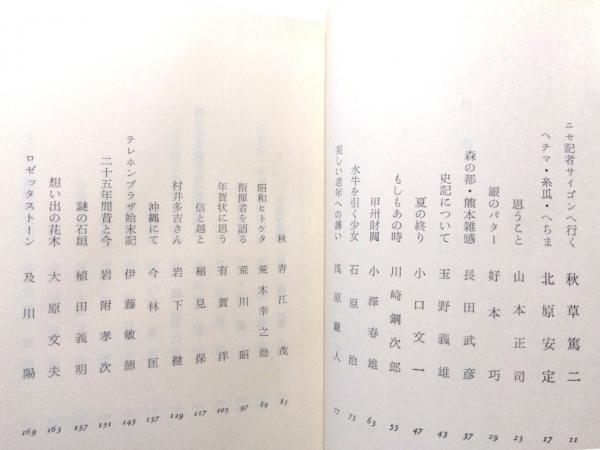 ニセ記者サイゴンへ行く 秋草篤二 11
ヘチマ・糸瓜・へちま 北原安定 17
思うこと 山本正司 23
銀のパター 好本巧 29
森の都・熊本雑感 長田武彦 37
史記について 玉野義雄 43
夏の終り 小口文一 47
もしもあの時 川崎鋼次郎 53
甲州財閥 小澤春雄 63
水牛を引く少女 石原治 73
美しい老年への誘い 浅原巌人 77
秋 青江茂 83
昭和ヒトケタ 荒木幸之助 89
指揮者を語る 荒川昭 97
年賀状に思う 有賀洋 105
信と越と 稲見保 117
村井多吉さん 岩下健 129
沖縄にて 今林匡 137
テレホンプラザ始末記 伊藤敏徳 143
二十五年間昔と今 岩附孝次 151
謎の石垣 植田義明 157
想い出の花木 大原文夫 163
ロゼッタストーン 及川陽 169